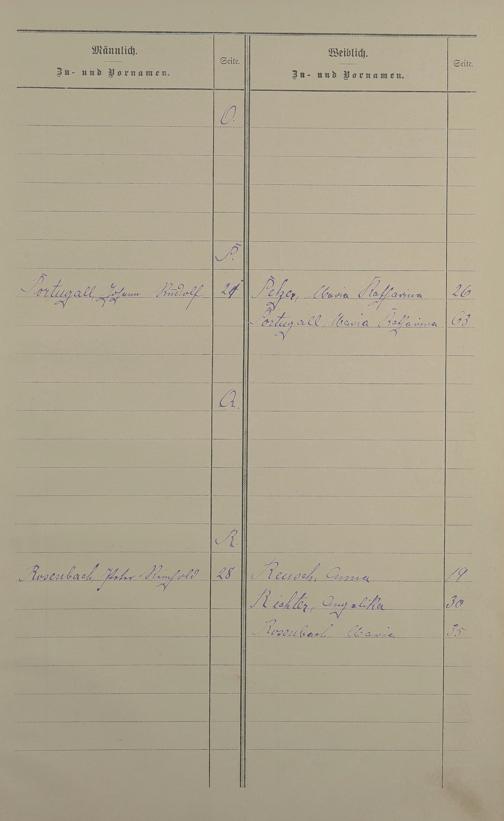 Männlich. Weiblich.
Zu- und Vornamen. Seite. Zu- und Vornamen. Seite.
O.
P.
Portugall, Johann Rudolf 21 Pelzer, Maria Katharina 26
Portugall, Maria Katharina 63
Q.
R
Rosenbach, Peter Reinhold 28 Reusch, Anna 19
Richter, Angelika 30
Rosenbach Maria 35